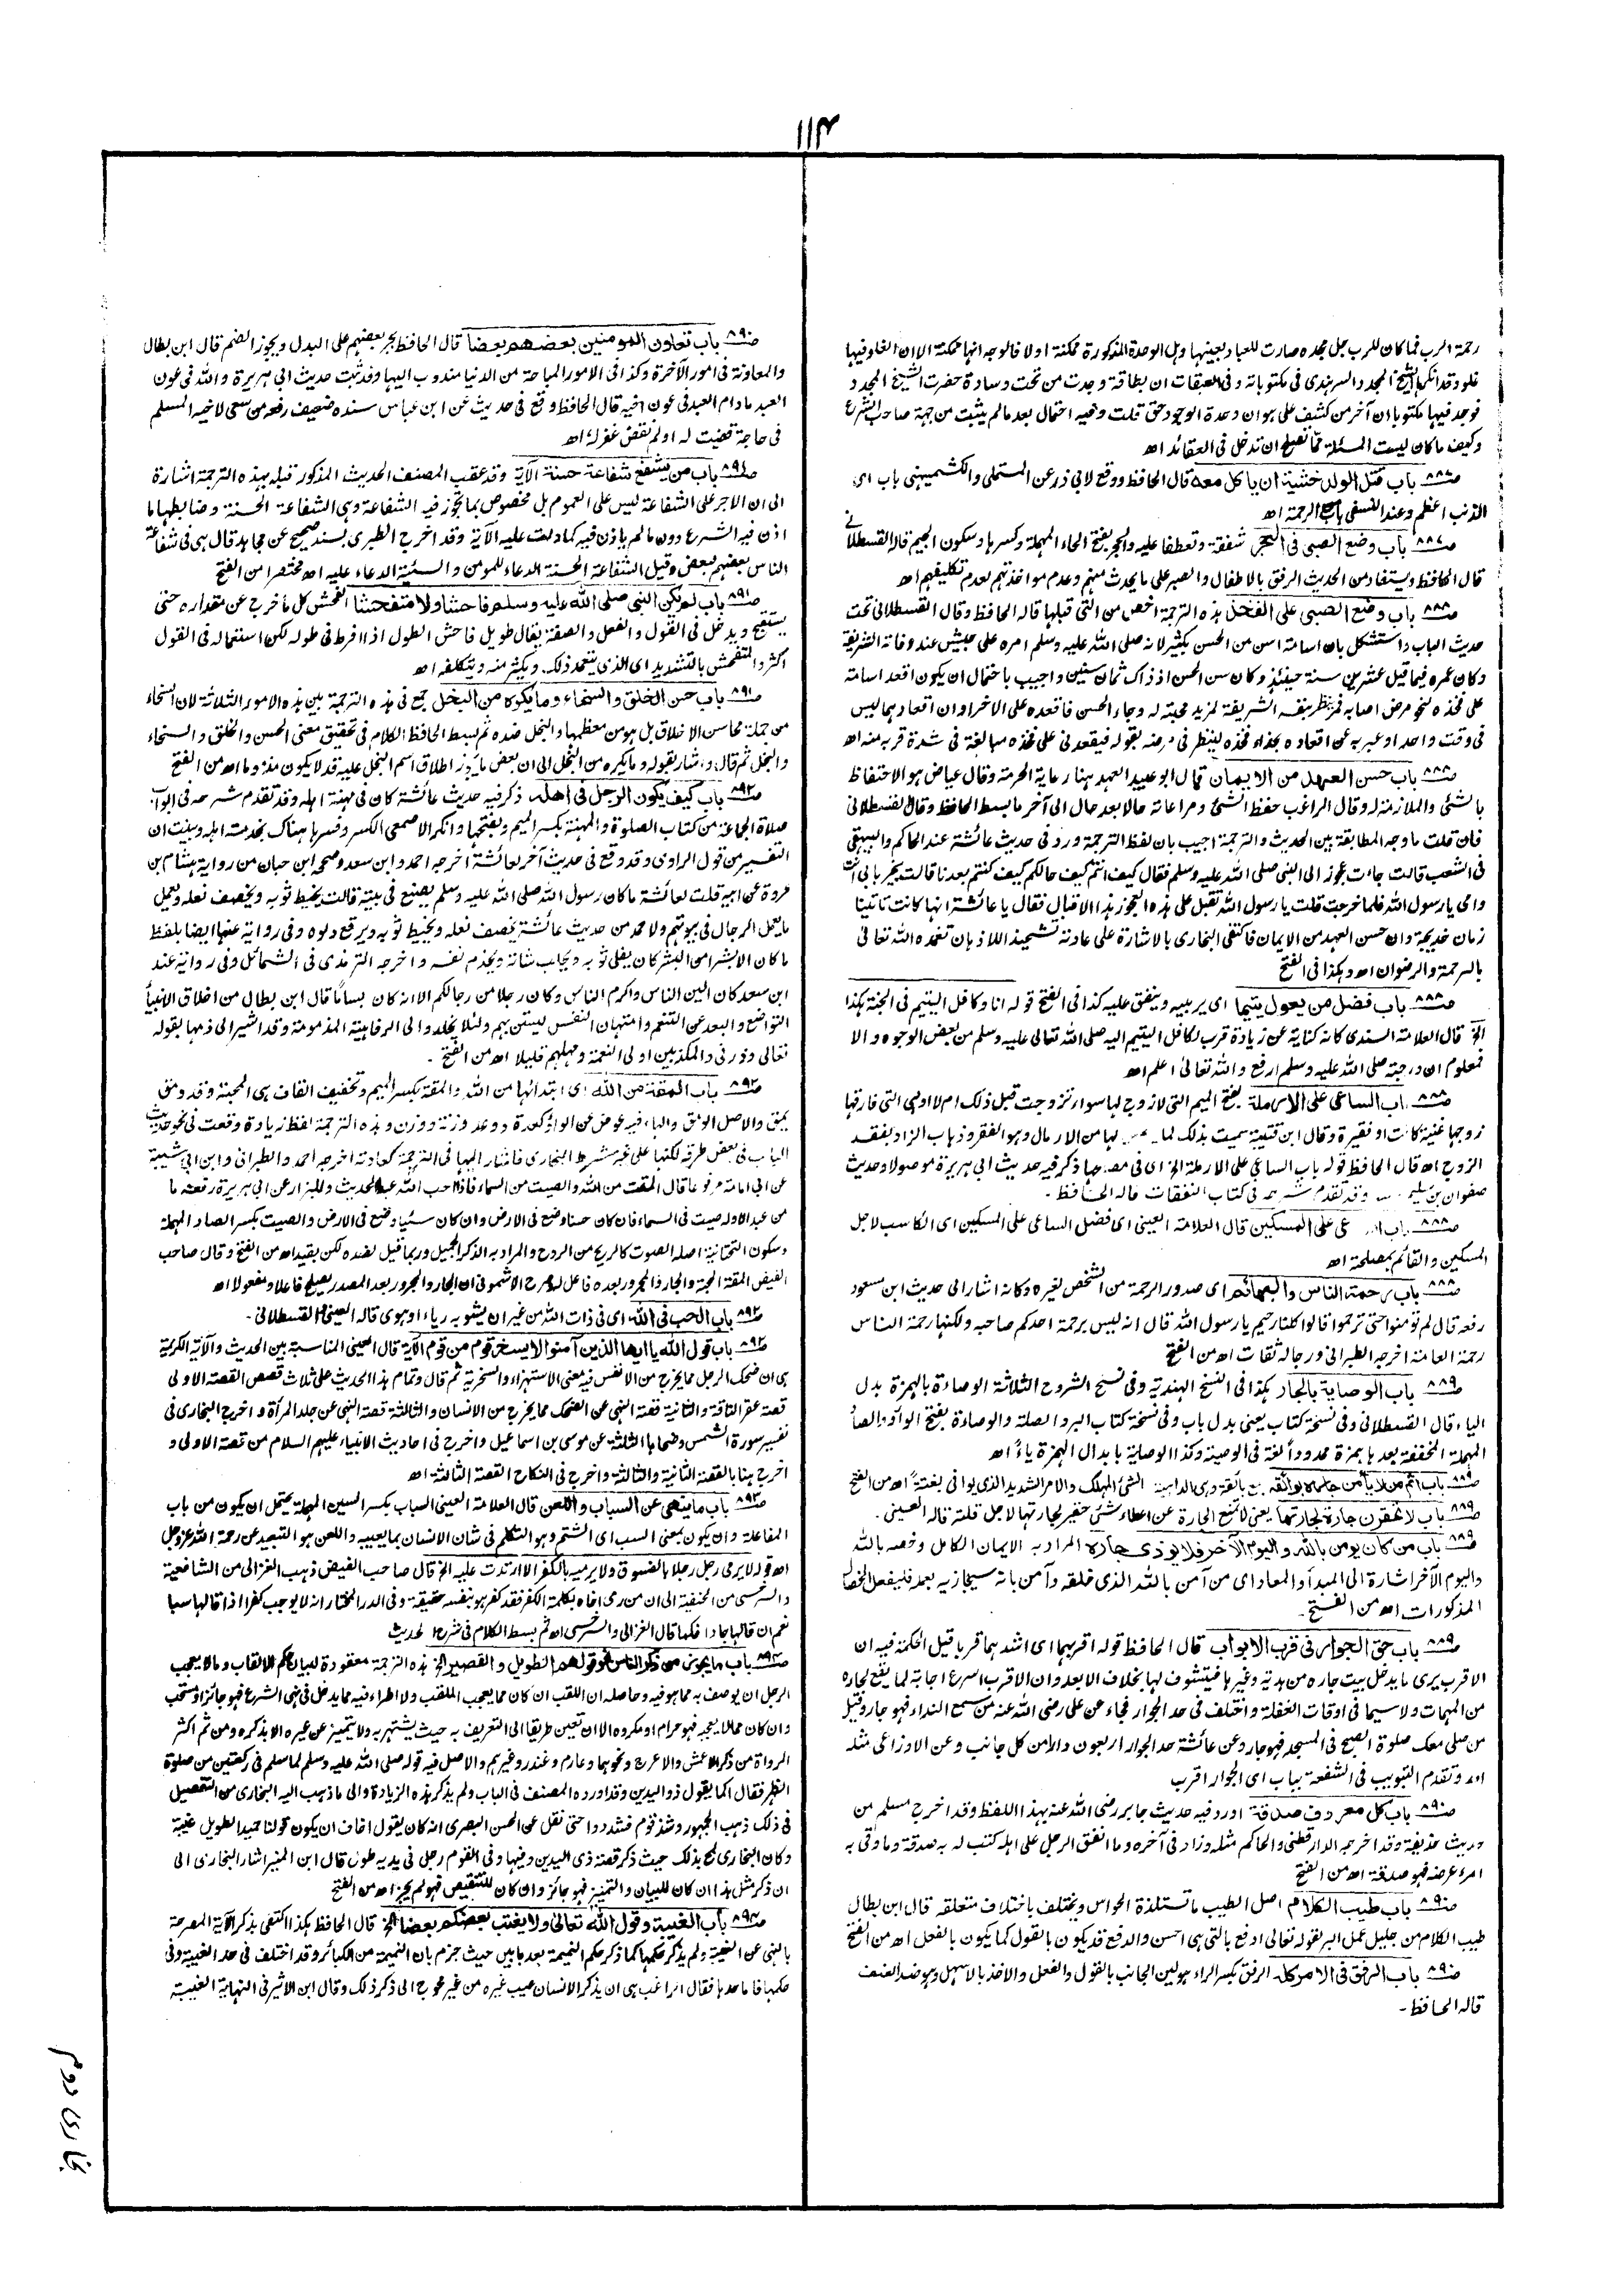 ١١٤
رحمة الرب فما كان للرب جل مجده صارت للعباد بعينها وبل الوحدة المذكورة ممكنة اولا فالوجه انها ممكنة الا ان الغلو فيها
غلو وقد انكرها الشيخ المجدد السرهندى فى مكتوباته وفى العبقات ان بطاقة وجدت من تحت وسادة حضرت الشيخ المجدد
فوجد فيها مكتوبا ان آخر من كشف على هو ان وحدة الوجود حق قلت وفيه احتمال بعد مالم يثبت من جهة صاحب الشرع
وكيف ما كان ليست المسئلة مما تصلح ان تدخل فى العقائد اه
صـ٨٨٧ باب قتل الولد خشية ان ياكل معه قال الحافظ ووقع لابى ذر عن المستملى والكشميهنى باب اى
الذنب اعظم وعند النسفى باب من الرحمة اه
صـ٨٨٧ باب وضع الصبى فى الحجر شفقة وتعطفا عليه والحجر بفتح الحاء المهملة وكسرها وسكون الجيم قاله القسطلانى
قال الحافظ ويستفاد من الحديث الرفق بالاطفال والصبر على ما يحدث منهم وعدم مواخذتهم لعدم تكليفهم اه
صـ٨٨٨ باب وضع الصبى على الفخذ هذه الترجمة اخص من التى قبلها قاله الحافظ وقال القسطلانى تحت
حديث الباب واستشكل بان اسامة اسن من الحسن بكثير لانه صلى الله عليه وسلم امره على جيش عند وفاته الشريفة
وكان عمره فيما قيل عشرين سنة حينئذ وكان سن الحسن اذ ذاك ثمان سنين واجيب باحتمال ان يكون اقعد اسامة
على فخذه لنحو مرض اصابه فمرّض بنفسه الشريفة لمزيد محبته له وجاء الحسن فاقعده على الاخر او ان اقعادهما ليس
فى وقت واحد او عبر به عن اقعاده بحذاء فخذه لينظر فى مرضه بقوله فيقعدنى على فخذه مبالغة فى شدة قربه منه اه
صـ٨٨٨ باب حسن العهد من الايمان قال ابو عبيد العهد هنا رعاية الحرمة وقال عياض هو الاحتفاظ
بالشئ والملازمة له وقال الراغب حفظ الشئ ومراعاته حالا بعد حال الى آخر ما بسط الحافظ وقال القسطلانى
فان قلت ما وجه المطابقة بين الحديث والترجمة اجيب بان لفظ الترجمة ورد فى حديث عائشة عند الحاكم والبيهقى
فى الشعب قالت جاءت عجوز الى النبى صلى الله عليه وسلم فقال كيف انتم كيف حالكم كيف كنتم بعدنا قالت بخير بابى انت
وامى يا رسول الله فلما خرجت قلت يا رسول الله تقبل على هذه العجوز هذا الاقبال فقال يا عائشة انها كانت تاتينا
زمان خديجة وان حسن العهد من الايمان فاكتفى البخارى بالاشارة على عادته تشحيذ اللاذهان تغمده الله تعالى
بالرحمة والرضوان اه وهكذا فى الفتح
صـ٨٨٨ باب فضل من يعول يتيما اى يربيه وينفق عليه كذا فى الفتح قوله انا وكافل اليتيم فى الجنة هكذا
الخ قال العلامة السندى كانه كناية عن زيادة قرب لكافل اليتيم اليه صلى الله تعالى عليه وسلم من بعض الوجوه والا
فمعلوم ان درجته صلى الله عليه وسلم ارفع والله تعالى اعلم اه
صـ٨٨٨ باب الساعى على الارملة بفتح الميم التى لا زوج لها سواء تزوجت قبل ذلك ام لا او هى التى فارقها
زوجها غنية كانت او فقيرة وقال ابن قتيبة سميت بذلك لما لها من الارمال وهو الفقر وذهاب الزاد بفقد
الزوج اه قال الحافظ قوله باب الساعى على الارملة اى فى مصالحها ذكر فيه حديث ابى هريرة موصولا وحديث
صفوان بن سليم وقد تقدم شرحه فى كتاب النفقات قاله الحافظ -
صـ٨٨٨ باب الساعى على المسكين قال العلامة العينى اى فضل الساعى على المسكين اى الكاسب لاجل
المسكين والقائم بمصلحته اه
صـ٨٨٨ باب رحمة الناس والبهائم اى صدور الرحمة من الشخص لغيره وكانه اشار الى حديث ابن مسعود
رفعه قال لم تؤمنوا حتى ترحموا قالوا كلنا رحيم يا رسول الله قال انه ليس برحمة احدكم صاحبه ولكنها رحمة الناس
رحمة العامة اخرجه الطبرانى ورجاله ثقات اه من الفتح
صـ٨٨٩ باب الوصاية بالجار هكذا فى النسخ الهندية وفى نسخ الشروح الثلاثة الوصاءة بالهمزة بدل
الياء قال القسطلانى وفى نسخة كتاب يعنى بدل باب وفى نسخة كتاب البر والصلة والوصاءة بفتح الواو والصاد
المهملة المخففة بعدها همزة ممدودا لغة فى الوصية وكذا الوصاية بابدال الهمزة ياءً اه
صـ٨٨٩ باب اثم من لا يأمن جاره بوائقه جمع بائقة وهى الداهية الشئ المهلك والامر الشديد الذى يوافى بغتةً اه من الفتح
صـ٨٨٩ باب لا تحقرن جارة لجارتها يعنى لا تمنع الجارة عن اعطاء شئ حقير لجارتها لاجل قلته قاله العينى -
صـ٨٨٩ باب من كان يومن بالله واليوم الآخر فلا يوذى جاره المراد به الايمان الكامل وخصه بالله
واليوم الآخر اشارة الى المبدأ والمعاد اى من آمن بالله الذى خلقه وآمن بانه سيجازيه بعمله فليفعل الخصال
المذكورات اه من الفتح -
صـ٨٨٩ باب حق الجوار فى قرب الابواب قال الحافظ قوله اقربهما اى اشدهما قربا قيل الحكمة فيه ان
الاقرب يرى ما يدخل بيت جاره من هدية وغيرها فيتشوف لها بخلاف الابعد وان الاقرب اسرع اجابة لما يقع لجاره
من المهمات ولاسيما فى اوقات الغفلة واختلف فى حد الجوار فجاء عن على رضى الله عنه من سمع النداء فهو جار وقيل
من صلى معك صلوة الصبح فى المسجد فهو جار وعن عائشة حد الجوار اربعون دارا من كل جانب وعن الاوزاعى مثله
اه وتقدم التبويب فى الشفعة بباب اى الجوار اقرب
صـ٨٩٠ باب كل معروف صدقة اورد فيه حديث جابر رضى الله عنه بهذا اللفظ وقد اخرج مسلم من
حديث حذيفة وقد اخرجه الدارقطنى والحاكم مثله وزاد فى آخره وما انفق الرجل على اهله كتب له به صدقة وما وقى به
المرء عرضه فهو صدقة اه من الفتح
صـ٨٩٠ باب طيب الكلام اصل الطيب ما تستلذة الحواس ويختلف باختلاف متعلقه قال ابن بطال
طيب الكلام من جليل عمل البر لقوله تعالى ادفع بالتى هى احسن والدفع قد يكون بالقول كما يكون بالفعل اه من الفتح
صـ٨٩٠ باب الرفق فى الامر كله الرفق بكسر الراء هو لين الجانب بالقول والفعل والاخذ بالاسهل وهو ضد العنف
قاله الحافظ -
صـ٨٩٠ باب تعاون المومنين بعضهم بعضا قال الحافظ بجر بعضهم على البدل ويجوز الضم قال ابن بطال
والمعاونة فى امور الآخرة وكذا فى الامور المباحة من الدنيا مندوب اليها وقد ثبت حديث ابى هريرة والله فى عون
العبد مادام العبد فى عون اخيه قال الحافظ وقع فى حديث عن ابن عباس سنده ضعيف رفعه من سعى لاخيه المسلم
فى حاجة قضيت له او لم تقض غفر له اه
صـ٨٩١ باب من يشفع شفاعة حسنة الآية وقد عقب المصنف الحديث المذكور قبله بهذه الترجمة اشارة
الى ان الاجر على الشفاعة ليس على العموم بل مخصوص بما تجوز فيه الشفاعة وهى الشفاعة الحسنة وضابطها ما
اذن فيه الشرع دون ما لم ياذن فيه كما دلت عليه الآية وقد اخرج الطبرى بسند صحيح عن مجاهد قال هى فى شفاعة
الناس بعضهم لبعض وقيل الشفاعة الحسنة الدعاء للمومن والسيئة الدعاء عليه اه مختصرا من الفتح
صـ٨٩١ باب لم يكن النبى صلى الله عليه وسلم فاحشا ولا متفحشا الفحش كل ما خرج عن مقداره حتى
يستقبح ويدخل فى القول والفعل والصفة يقال طويل فاحش الطول اذا افرط فى طوله لكن استعماله فى القول
اكثر والمتفحش بالتشديد اى الذى يتعمد ذلك ويكثر منه ويتكلفه اه
صـ٨٩١ باب حسن الخلق والسخاء وما يكره من البخل جمع فى هذه الترجمة بين هذه الامور الثلاثة لان السخاء
من جملة محاسن الاخلاق بل هو من معظمها والبخل ضده ثم بسط الحافظ الكلام فى تحقيق معنى الحسن والخلق والسخاء
والبخل ثم قال واشار بقوله وما يكره من البخل الى ان بعض ما يجوز اطلاق اسم البخل عليه قد لا يكون مذموما اه من الفتح
صـ٨٩٢ باب كيف يكون الرجل فى اهله ذكر فيه حديث عائشة كان فى مهنة اهله وقد تقدم شرحه فى ابواب
صلاة الجماعة من كتاب الصلوة والمهنة بكسر الميم وبفتحها وانكر الاصمعى الكسر وفسرها هناك بخدمة اهله وبينت ان
التفسير من قول الراوى وقد وقع فى حديث آخر لعائشة اخرجه احمد وابن سعد وصححه ابن حبان من رواية هشام بن
عروة عن ابيه قلت لعائشة ما كان رسول الله صلى الله عليه وسلم يصنع فى بيته قالت يخيط ثوبه ويخصف نعله ويعمل
ما يعمل الرجال فى بيوتهم ولاحمد من حديث عائشة يخصف نعله ويخيط ثوبه ويرقع دلوه وفى رواية عنها ايضا بلفظ
ما كان الا بشرا من البشر كان يفلى ثوبه ويحلب شاته ويخدم نفسه واخرجه الترمذى فى الشمائل وفى رواية عند
ابن سعد كان الين الناس واكرم الناس وكان رجلا من رجالكم الا انه كان بساما قال ابن بطال من اخلاق الانبياء
التواضع والبعد عن التنعم وامتهان النفس ليستن بهم ولئلا يخلدوا الى الرفاهية المذمومة وقد اشير الى ذمها بقوله
تعالى وذرنى والمكذبين اولى النعمة ومهلهم قليلا اه من الفتح -
صـ٨٩٢ باب المقة من الله اى ابتداءها من الله والمقة بكسر الميم وتخفيف القاف هى المحبة وقد ومق
يمق والاصل الومق والهاء فيه عوض عن الواو كعدة ووعد وزنة ووزن وهذه الترجمة لفظ زيادة وقعت فى نحو حديث
الباب فى بعض طرقه لكنها على غير شرط البخارى فاشار اليها فى الترجمة كعادته اخرجه احمد والطبرانى وابن ابى شيبة
عن ابى امامة مرفوعا قال المقت من الله والصيت من السماء فاذا احب الله عبدا الحديث وللبزار عن ابى هريرة رفعته ما
من عبد الا وله صيت فى السماء فان كان حسنا وضع فى الارض وان كان سيئا وضع فى الارض والصيت بكسر الصاد المهملة
وسكون التحتانية اصله الصوت كالريح من الروح والمراد به الذكر الجميل وربما قيل لضده لكن بقيد اه من الفتح وقال صاحب
الفيض المقة المحبة والجار والمجرور بعده فاعل له صرح الاشمونى ان الجار والمجرور بعد المصدر يصلح فاعلا ومفعولا اه
صـ٨٩٢ باب الحب فى الله اى فى ذات الله من غير ان يشوبه رياء او هوى قاله العينى والقسطلانى -
صـ٨٩٢ باب قول الله يا ايها الذين آمنوا لا يسخر قوم من قوم الآية قال العينى المناسبة بين الحديث والآية الكريمة
هى ان ضحك الرجل مما يخرج من الانفس فيه معنى الاستهزاء والسخرية ثم قال وتمام هذا الحديث على ثلاث قصص القصة الاولى
قصة عقر الناقة والثانية قصة النهى عن الضحك مما يخرج من الانسان والثالثة قصة النهى عن جلد المرأة واخرج البخارى فى
تفسير سورة الشمس وضحاها الثلثة عن موسى بن اسماعيل واخرج فى احاديث الانبياء عليهم السلام من قصة الاولى و
اخرج هنا بالقصة الثانية والثالثة واخرج فى النكاح القصة الثالثة اه
صـ٨٩٣ باب ما ينهى عن السباب واللعن قال العلامة العينى السباب بكسر السين المهملة يحتمل ان يكون من باب
المفاعلة وان يكون بمعنى السب اى الشتم وهو التكلم فى شان الانسان بما يعيبه واللعن هو التبعيد عن رحمة الله عزوجل
اه قوله لا يرمى رجل رجلا بالفسوق ولا يرميه بالكفر الا ارتدت عليه الخ قال صاحب الفيض ذهب الغزالى من الشافعية
والسرخسى من الحنفية الى ان من رمى اخاه بكلمة الكفر فقد كفر هو بنفسه حقيقة وفى الدر المختار انه لا يوجب كفرا اذا قالها سبا
نعم ان قالها جادا فكما قال الغزالى والسرخسى اه ثم بسط الكلام فى شرح الحديث
صـ٨٩٤ باب ما يجوز من ذكر الناس نحو قولهم الطويل والقصير الخ هذه الترجمة معقودة لبيان حكم الالقاب وما لا يعجب
الرجل ان يوصف به مما هو فيه وحاصله ان اللقب ان كان مما يعجب الملقب ولا اطراء فيه مما يدخل فى نهى الشرع فهو جائز او مستحب
وان كان مما لا يعجبه فهو حرام او مكروه الا ان تعين طريقا الى التعريف به حيث يشتهر به ولا يتميز عن غيره الا بذكره ومن ثم اكثر
الرواة من ذكر الاعمش والاعرج ونحوهما وعارم وغندر وغيرهم والاصل فيه قوله صلى الله عليه وسلم لما سلم فى ركعتين من صلوة
الظهر فقال اكما يقول ذو اليدين وقد اورده المصنف فى الباب ولم يذكر هذه الزيادة والى ما ذهب اليه البخارى من التفصيل
فى ذلك ذهب الجمهور وشذ قوم فشددوا حتى نقل عن الحسن البصرى انه كان يقول اخاف ان يكون قولنا حميد الطويل غيبة
وكان البخارى لمح بذلك حيث ذكر قصة ذى اليدين وفيها وفى القوم رجل فى يديه طول قال ابن المنير اشار البخارى الى
ان ذكر مثل هذا ان كان للبيان والتميز فهو جائز وان كان للتنقيص فهو لم يجز اه من الفتح
صـ٨٩٤ باب الغيبة وقول الله تعالى ولا يغتب بعضكم بعضا الخ قال الحافظ هكذا اكتفى بذكر الآية المصرحة
بالنهى عن الغيبة ولم يذكر حكمها كما ذكر حكم النميمة بعد بابين حيث جزم بان النميمة من الكبائر وقد اختلف فى حد الغيبة وفى
حكمها فاما حدها فقال الراغب هى ان يذكر الانسان عيب غيره من غير محوج الى ذكر ذلك وقال ابن الاثير فى النهاية الغيبة
بخارى دوم